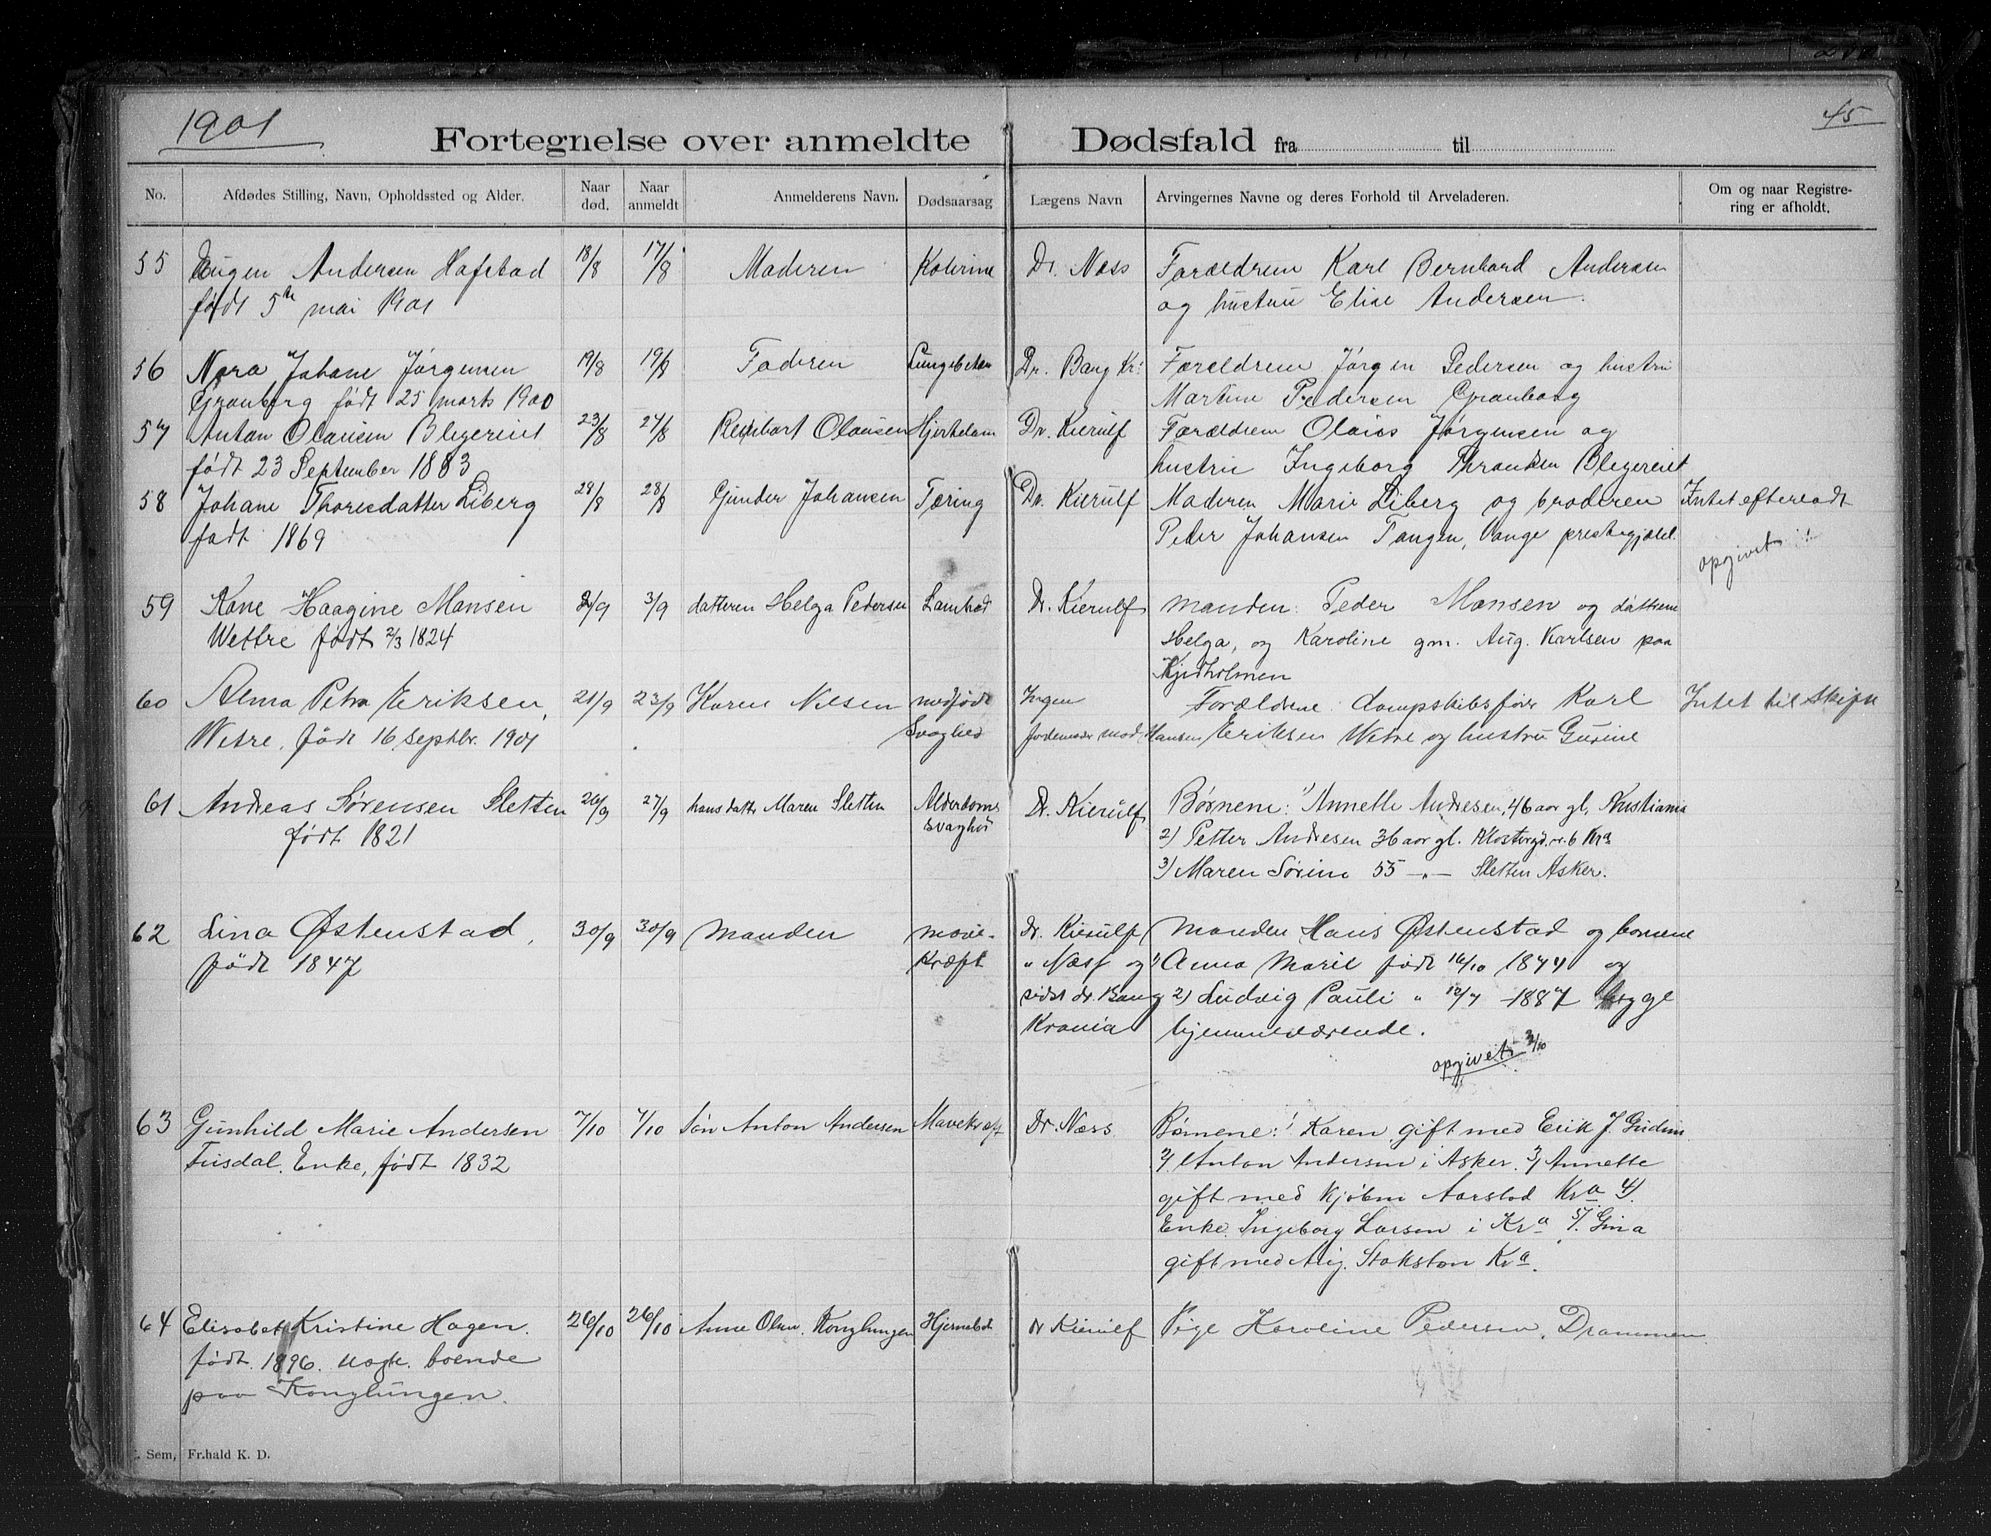 1901
45
Fortegnelse over anmeldte Dødsfald fra til
No. Afdødes Stilling, Navn, Opholdssted og Alder. Naar død. Naar anmeldt Anmelderens Navn. Dødsaarsag Lægens Navn Arvingernes Navne og deres Forhold til Arveladeren. Om og naar Registrering er afholdt.
55 Eugen Andersen Hofstad 13/8 17/8 Moderen Kolerine Dr. Næss Forældrene Karl Bernhard Andersen
født 5te mai 1901 og hustru Elise Andersen.
56 Nora Johane Jørgensen 19/8 19/8 Faderen Lungebetæn Dr. Bang Kr: Forældrene Jørgen Pedersen og hustru
Granberg født 25 marts 1900 Martine Pedersen Granberg
57 Anton Olausen Blegereiet 23/8 24/8 Reinhart Olausen Hjertelam Dr. Kierulf Forældrene Olaus Jørgensen og
født 23 September 1883 hustru Ingeborg Blegereiet
58 Johane Thoresdatter Liberg 28/8 28/8 Gunder Johansen Tæring Dr. Kierulf Moderen Marie Liberg og broderen Intet efterladt
født 1869 Peder Johansen Tangen, Vange prestegjæld. opgivet
59 Kone Haagine Monsen 2/9 3/9 datteren Helga Pedersen Lamhed Dr. Kierulf manden: Peder Monsen og døttrene
Wettre født 2/3 1824 Helga, og Karoline gm. Aug. Karlsen paa
Kjedholmen
60 Alma Petra Eriksen, 21/9 23/9 Karen Nilsen medfødt Ingen Forældrene: dampskibsfører Karl Intet til Skifte
Wetre, født 16 septbr. 1901 Svaghed jordemoder mad. Hansen Eriksen Wetre og hustru Gurine
61 Andreas Sørensen Sletten 26/9 27/9 hans datter Maren Sletten Alderdoms Dr. Kierulf Børnene: 1) Annette Andresen, 46 aar gl, Kristiania
født 1821 svaghed 2) Petter Andresen 36 aar gl. Klostergd. nr. 6 Kra
3) Maren Sørine 55 -"- Sletten Asker.
62 Lina Østenstad, 30/9 30/9 Manden mave- Dr. Kierulf Manden Hans Østenstad og børnene
født 1847 kræft " Næss og 1) Anna Marie født 16/10 1874 og
sidst dr. Bang 2) Ludvig Pauli " 12/7 1887 begge
Krania hjemmeværende.
opgivet 3/10
63 Gunhild Marie Andersen 7/10 7/10 Søn Anton Andersen Mavekræft Dr. Næss Børnene: 1) Karen gift med Erik J.
Tusdal. Enke, født 1832 2) Anton Andersen i Asker. 3) Annette
gift med Kjøbm Aarstad Kra 4)
Enke Ingeborg Larsen i Kra 5). Gina
gift med Aug. Stokston Kra.
64 Elisabet Kristine Hagen. 26/10 26/10 Anne Olsen, Konglungen Hjernebet dr Kierulf Pige Karoline Pedersen, Drammen
født 1896. boende
paa Konglungen.
Sem, Fr.hald K. D.